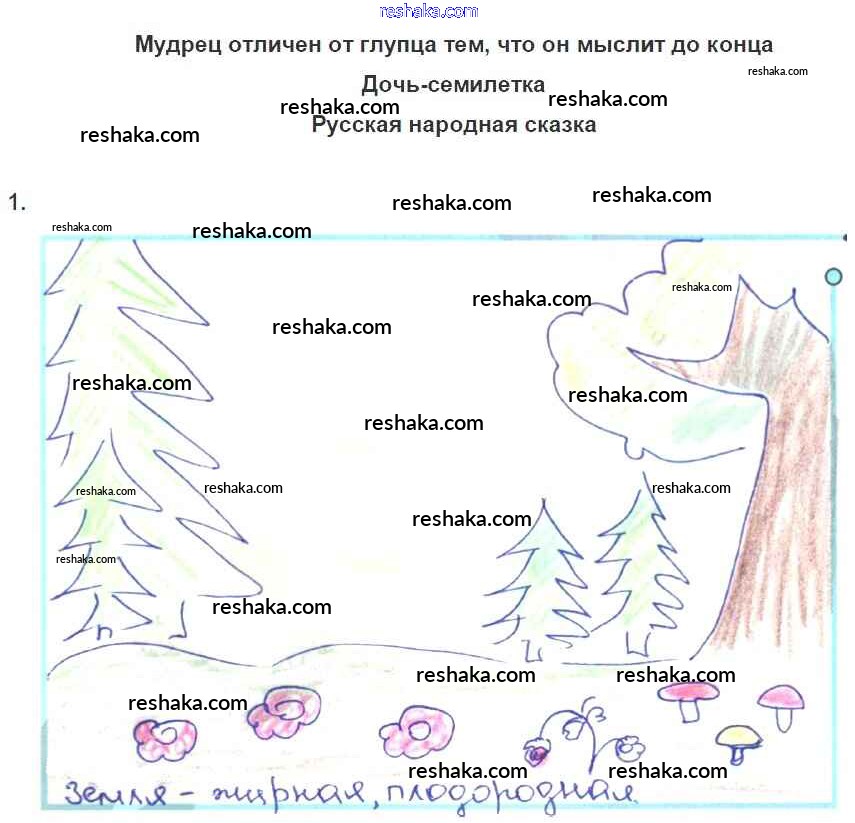 reshaka.com
Мудрец отличен от глупца тем, что он мыслит до конца
reshaka.com
Дочь-семилетка
reshaka.com reshaka.com
Русская народная сказка
reshaka.com
1.
reshaka.com reshaka.com
reshaka.com reshaka.com
reshaka.com
reshaka.com reshaka.com
reshaka.com
reshaka.com reshaka.com
reshaka.com
reshaka.com reshaka.com reshaka.com
reshaka.com
reshaka.com
reshaka.com
reshaka.com reshaka.com
reshaka.com
reshaka.com reshaka.com
земля - жирная, плодородная